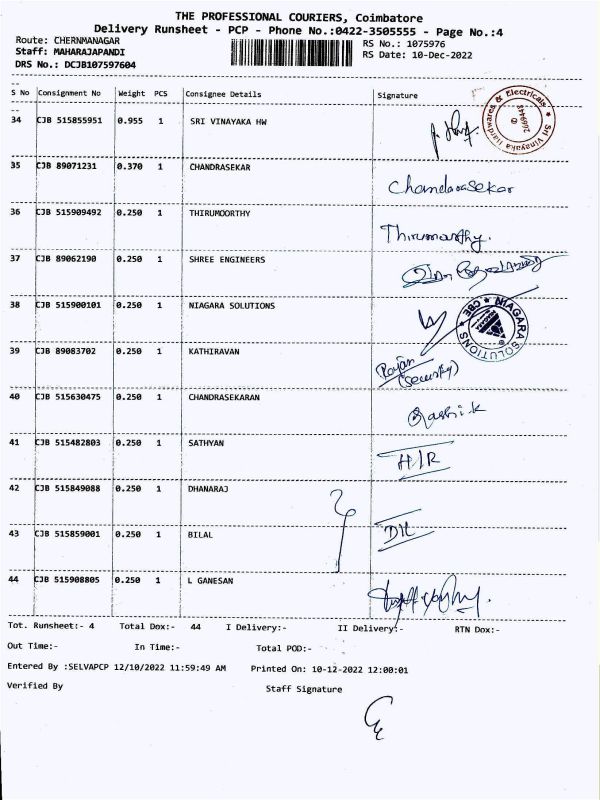 THE PROFESSIONAL COURIERS, Coimbatore
Delivery Runsheet - PCP - Phone No.:0422-3505555 - Page No.:4
Route: CHERNMANAGAR
RS No.: 1075976
Staff: MAHARAJAPANDI
RS Date: 10-Dec-2022
DRS No.: DCJB107597604
S No Consignment No Weight PCS Consignee Details Signature
34 CJB 515855951 0.955 1 SRI VINAYAKA HW
Sri Vinayaka Hardwares & Electricals
35 CJB 89071231 0.370 1 CHANDRASEKAR
Chandarasekar
36 CJB 515909492 0.250 1 THIRUMOORTHY
Thirumoorthy.
37 CJB 89062190 0.250 1 SHREE ENGINEERS
38 CJB 515900101 0.250 1 NIAGARA SOLUTIONS
NIAGARA SOLUTIONS ★ CBE ★
39 CJB 89083702 0.250 1 KATHIRAVAN
Rajan
(Security)
40 CJB 515630475 0.250 1 CHANDRASEKARAN
41 CJB 515482803 0.250 1 SATHYAN
H/R
42 CJB 515849088 0.250 1 DHANARAJ
43 CJB 515859001 0.250 1 BILAL
44 CJB 515908805 0.250 1 L GANESAN
Tot. Runsheet:- 4 Total Dox:- 44 I Delivery:- II Delivery:- RTN Dox:-
Out Time:- In Time:- Total POD:-
Entered By :SELVAPCP 12/10/2022 11:59:49 AM Printed On: 10-12-2022 12:00:01
Verified By Staff Signature